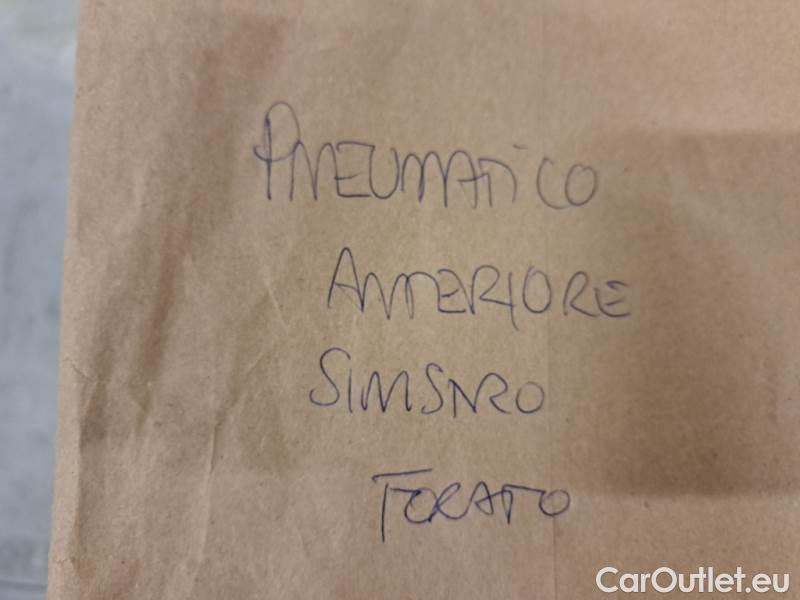 PNEUMATICO
ANTERIORE
SINISTRO
FORATO
CarOutlet.eu